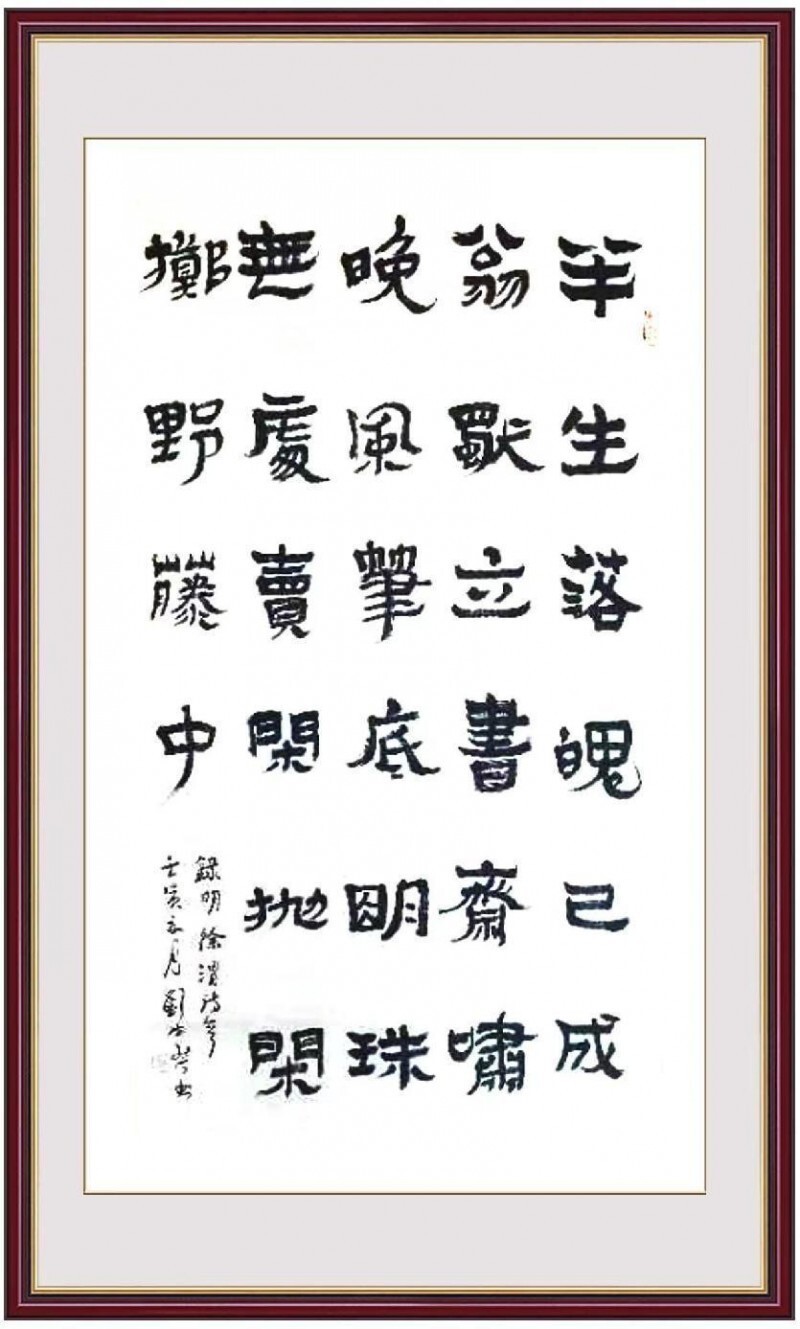 半生落魄已成
翁獨立書齋嘯
晚風筆底明珠
無處賣閑抛閑
擲野藤中
錄明徐渭詩
壬寅 月劉 書